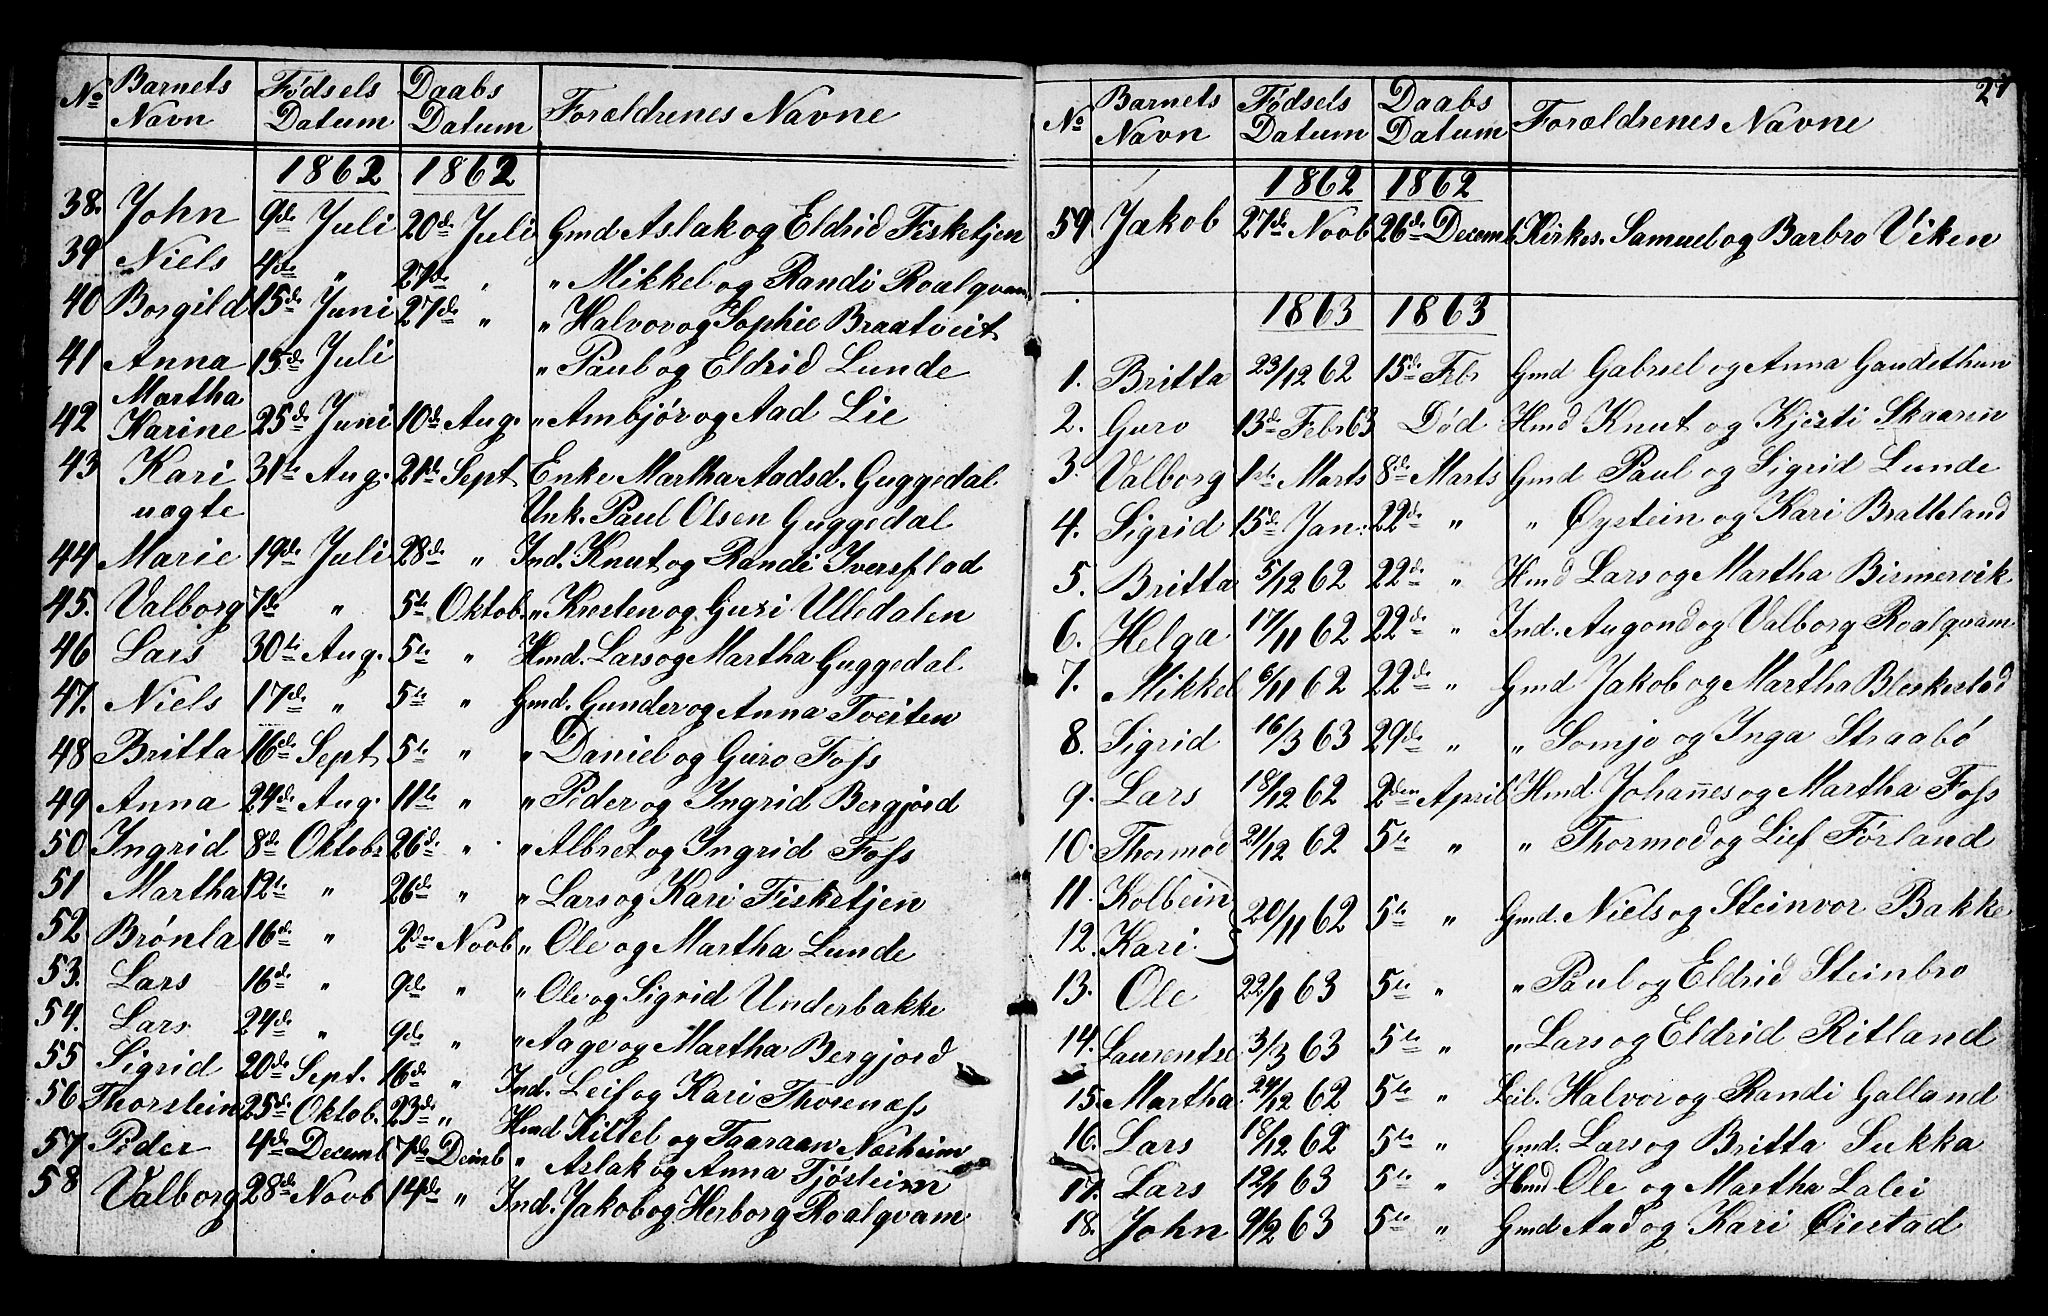 No Barnets Navn Fødsels Datum Daabs Datum Forældrenes Navne
1862 1862
38. John 9de Juli 20de Juli Gmd Aslak og Eldrid Fisketjen
39 Niels 4de " 27de " " Mikkel og Randi Roalqvam
40 Borgild 15de Juni 27de " " Halvor og Sophie Braatveit
41 Anna 15de Juli " Paul og Eldrid Lunde
42 Martha Karine 25de Juni 10de Aug. " Ambjør og Aad Lie
43 Kari 31te Aug. 21de Sept Enke Martha Aadsd. Guggedal
uægte Unk. Paul Olsen Guggedal
44 Marie 19de Juli 28de " Ind. Knut og Randi Iversflad
45. Valborg 7de " 5te Oktob. " Kresten og Guri Ulledalen
46 Lars 30te Aug. 5te " Hmd. Lars og Martha Guggedal
47. Niels 17de " 5te " Gmd. Gunder og Anna Tveiten
48 Britta 16de Sept 5te " " Daniel og Guro Foss
49 Anna 24de Aug. 11te " " Peder og Ingrid Bergjord
50 Ingrid 8de Oktobr 26de " " Albret og Ingrid Foss
51 Martha 12te " 26de " " Lars og Kari Fisketjen
52 Brønla 16de " 2den Novb " Ole og Martha Lunde
53. Lars 16de " 9de " " Ole og Sigrid Underbakke
54. Lars 24de " 9de " " Aage og Martha Bergjord
55 Sigrid 20de Sept. 16de " Ind. Leif og Kari Thorenæss
56 Thorstein 25de Oktob. 23de " Hmd Kittel og Taaraan Næsheim
57 Peder 4de Decemb 7de Decmb " Aslak og Anna Fjøsteim
58 Valborg 28de Novb 14de " Ind. Jakob og Herborg Roalqvam
27
No Barnets Navn Fødsels Datum Daabs Datum Forældrenes Navne
1862 1862
59 Jakob 27de Novb 26de Decemb Kirkes. Samuel og Barbro Viken
1863 1863
1. Britta 23/12 62 15de Febr Gmd Gabriel og Anna Gaudethun
2. Guro 13de Febr 63 Død Hmd Knut og Kjersti Skaarin
3. Valborg 1ste Marts 8de Marts Gmd Paul og Sigrid Lunde
4. Sigrid 15de Jan: 22de " " Øystein og Kari Bratteland
5. Britta 5/12 62 22de " Hmd Lars og Martha Birmervik
6. Helga 17/11 62 22de " Ind. Augond og Valborg Roalqvam
7. Mikkel 6/11 62 22de " Gmd Jakob og Martha Bleskestad
8. Sigrid 16/3 63 29de " " Somje og Inga Straabø
9. Lars 18/12 62 2den April Hmd. Johannes og Martha Foss
10. Thormod 21/12 62 5te " " Thormod og Lief Førland
11. Kolbein
20/11 62 5te " Gmd. Niels og Steinvor Bakke
12. Kari
13. Ole 22/1 63 5te " " Paul og Eldrid Steinbro
14. Laurentse 3/3 63 5te " " Lars og Eldrid Ritland
15. Martha 24/12 62 5te " Leil. Halvor og Randi Galland
16. Lars 18/12 62 5te " Gmd. Lars og Britta Sukka
17. Lars 12/1 63 5te " Hmd Ole og Martha Lalei
18. John 9/2 63 5te " Gmd Aad og Kari Øiestad